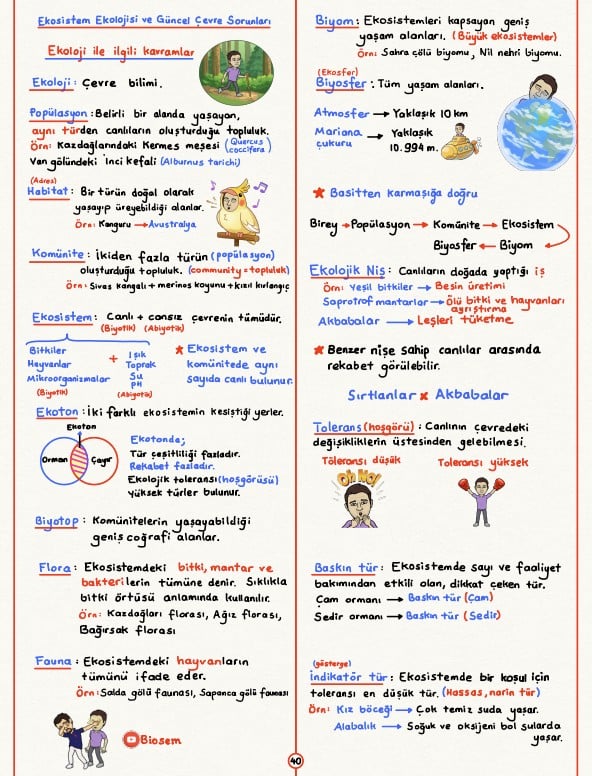 Ekosistem Ekolojisi ve Güncel Çevre Sorunları
Ekoloji ile ilgili kavramlar
Ekoloji : Çevre bilimi.
Popülasyon : Belirli bir alanda yaşayan,
aynı türden canlıların oluşturduğu topluluk.
Örn: Kazdağlarındaki Kermes meşesi (Quercus coccifera)
Van gölündeki inci kefali (Alburnus tarichi)
(Adres)
Habitat : Bir türün doğal olarak
yaşayıp üreyebildiği alanlar.
Örn: Kanguru → Avustralya
Komünite : İkiden fazla türün (popülasyon)
oluşturduğu topluluk. (community = topluluk)
Örn: Sivas kangalı + merinos koyunu + kızıl kırlangıç
Ekosistem : Canlı + cansız çevrenin tümüdür.
(Biyotik) (Abiyotik)
Bitkiler
Hayvanlar
Mikroorganizmalar
(Biyotik)
+
Işık
Toprak
Su
pH
(Abiyotik)
* Ekosistem ve
komünitede aynı
sayıda canlı bulunur.
Ekoton : İki farklı ekosistemin kesiştiği yerler.
Ekoton
Orman
Çayır
Ekotonda;
Tür çeşitliliği fazladır.
Rekabet fazladır.
Ekolojik toleransı (hoşgörüsü)
yüksek türler bulunur.
Biyotop : Komünitelerin yaşayabildiği
geniş coğrafi alanlar.
Flora : Ekosistemdeki bitki, mantar ve
bakterilerin tümüne denir. Sıklıkla
bitki örtüsü anlamında kullanılır.
Örn: Kazdağları florası, Ağız florası,
Bağırsak florası
Fauna : Ekosistemdeki hayvanların
tümünü ifade eder.
Örn: Salda gölü faunası, Sapanca gölü faunası
Biosem
Biyom : Ekosistemleri kapsayan geniş
yaşam alanları. (Büyük ekosistemler)
Örn: Sahra çölü biyomu, Nil nehri biyomu.
(Ekosfer)
Biyosfer : Tüm yaşam alanları.
Atmosfer → Yaklaşık 10 km
Mariana çukuru → Yaklaşık
10.994 m.
* Basitten karmaşığa doğru
Birey → Popülasyon → Komünite → Ekosistem
Biyosfer ← Biyom
Ekolojik Niş : Canlıların doğada yaptığı iş
Örn: Yeşil bitkiler → Besin üretimi
Saprotrof mantarlar → Ölü bitki ve hayvanları
ayrıştırma
Akbabalar → Leşleri tüketme
* Benzer nişe sahip canlılar arasında
rekabet görülebilir.
Sırtlanlar x Akbabalar
Tolerans (hoşgörü) : Canlının çevredeki
değişikliklerin üstesinden gelebilmesi.
Töleransı düşük
Toleransı yüksek
Oh No!
Baskın tür : Ekosistemde sayı ve faaliyet
bakımından etkili olan, dikkat çeken tür.
Çam ormanı → Baskın tür (Çam)
Sedir ormanı → Baskın tür (Sedir)
(gösterge)
İndikatör tür : Ekosistemde bir koşul için
toleransı en düşük tür. (Hassas, narin tür)
Örn: Kız böceği → Çok temiz suda yaşar.
Alabalık → Soğuk ve oksijeni bol sularda
yaşar.
40